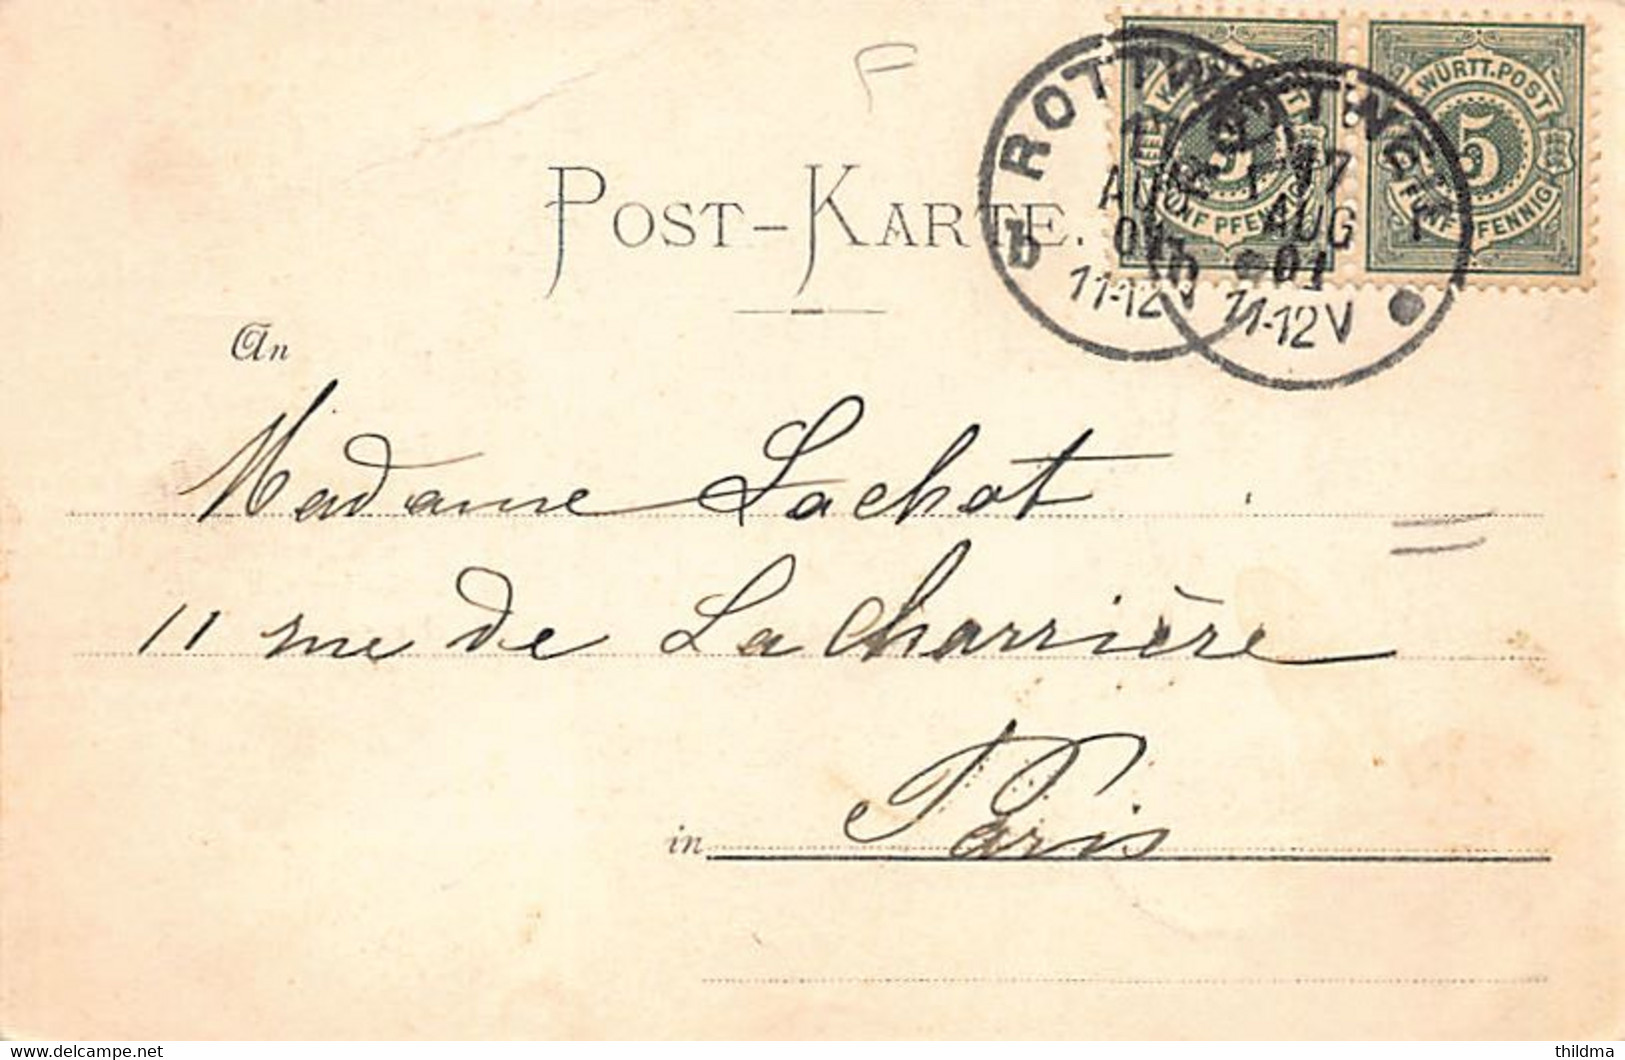 F
K. WÜRTT. POST
5
FÜNF PFENNIG
K. WÜRTT. POST
5
FÜNF PFENNIG
ROTTWEIL
17
AUG
01
11-12V
b
ROTTWEIL
17
AUG
01
11-12V
b
POST-KARTE.
An
Madame Lachot
11 rue de La Charrière
in Paris
www.delcampe.net
thildma